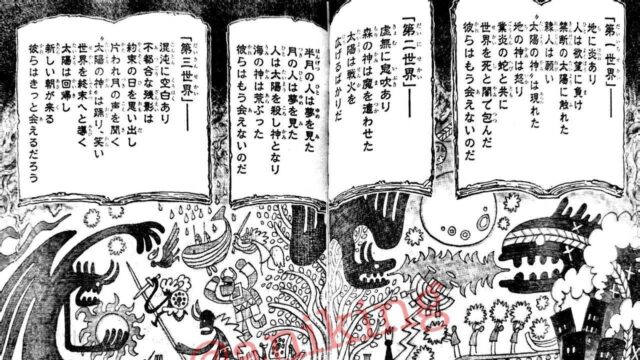 「第一世界」──
地に炎あり
人は欲望に負け
禁断の太陽に触れた
隷人は願い
"太陽の神"は現れた
地の神は怒り
業炎の蛇と共に
世界を死と闇で包んだ
彼らはもう会えないのだ
「第二世界」──
虚無に息吹あり
森の神は魔を遣わせた
太陽は戦火を
広げるばかりだ
半月の人は夢を見た
月の人は夢を見た
人は太陽を殺し神となり
海の神は荒ぶった
彼らはもう会えないのだ
「第三世界」──
混沌に空白あり
不都合な残影は
約束の日を思い出し
片われ月の声を聞く
"太陽の神"は踊り、笑い
世界を終末へと導く
太陽は回帰し
新しい朝が来る
彼らはきっと会えるだろう